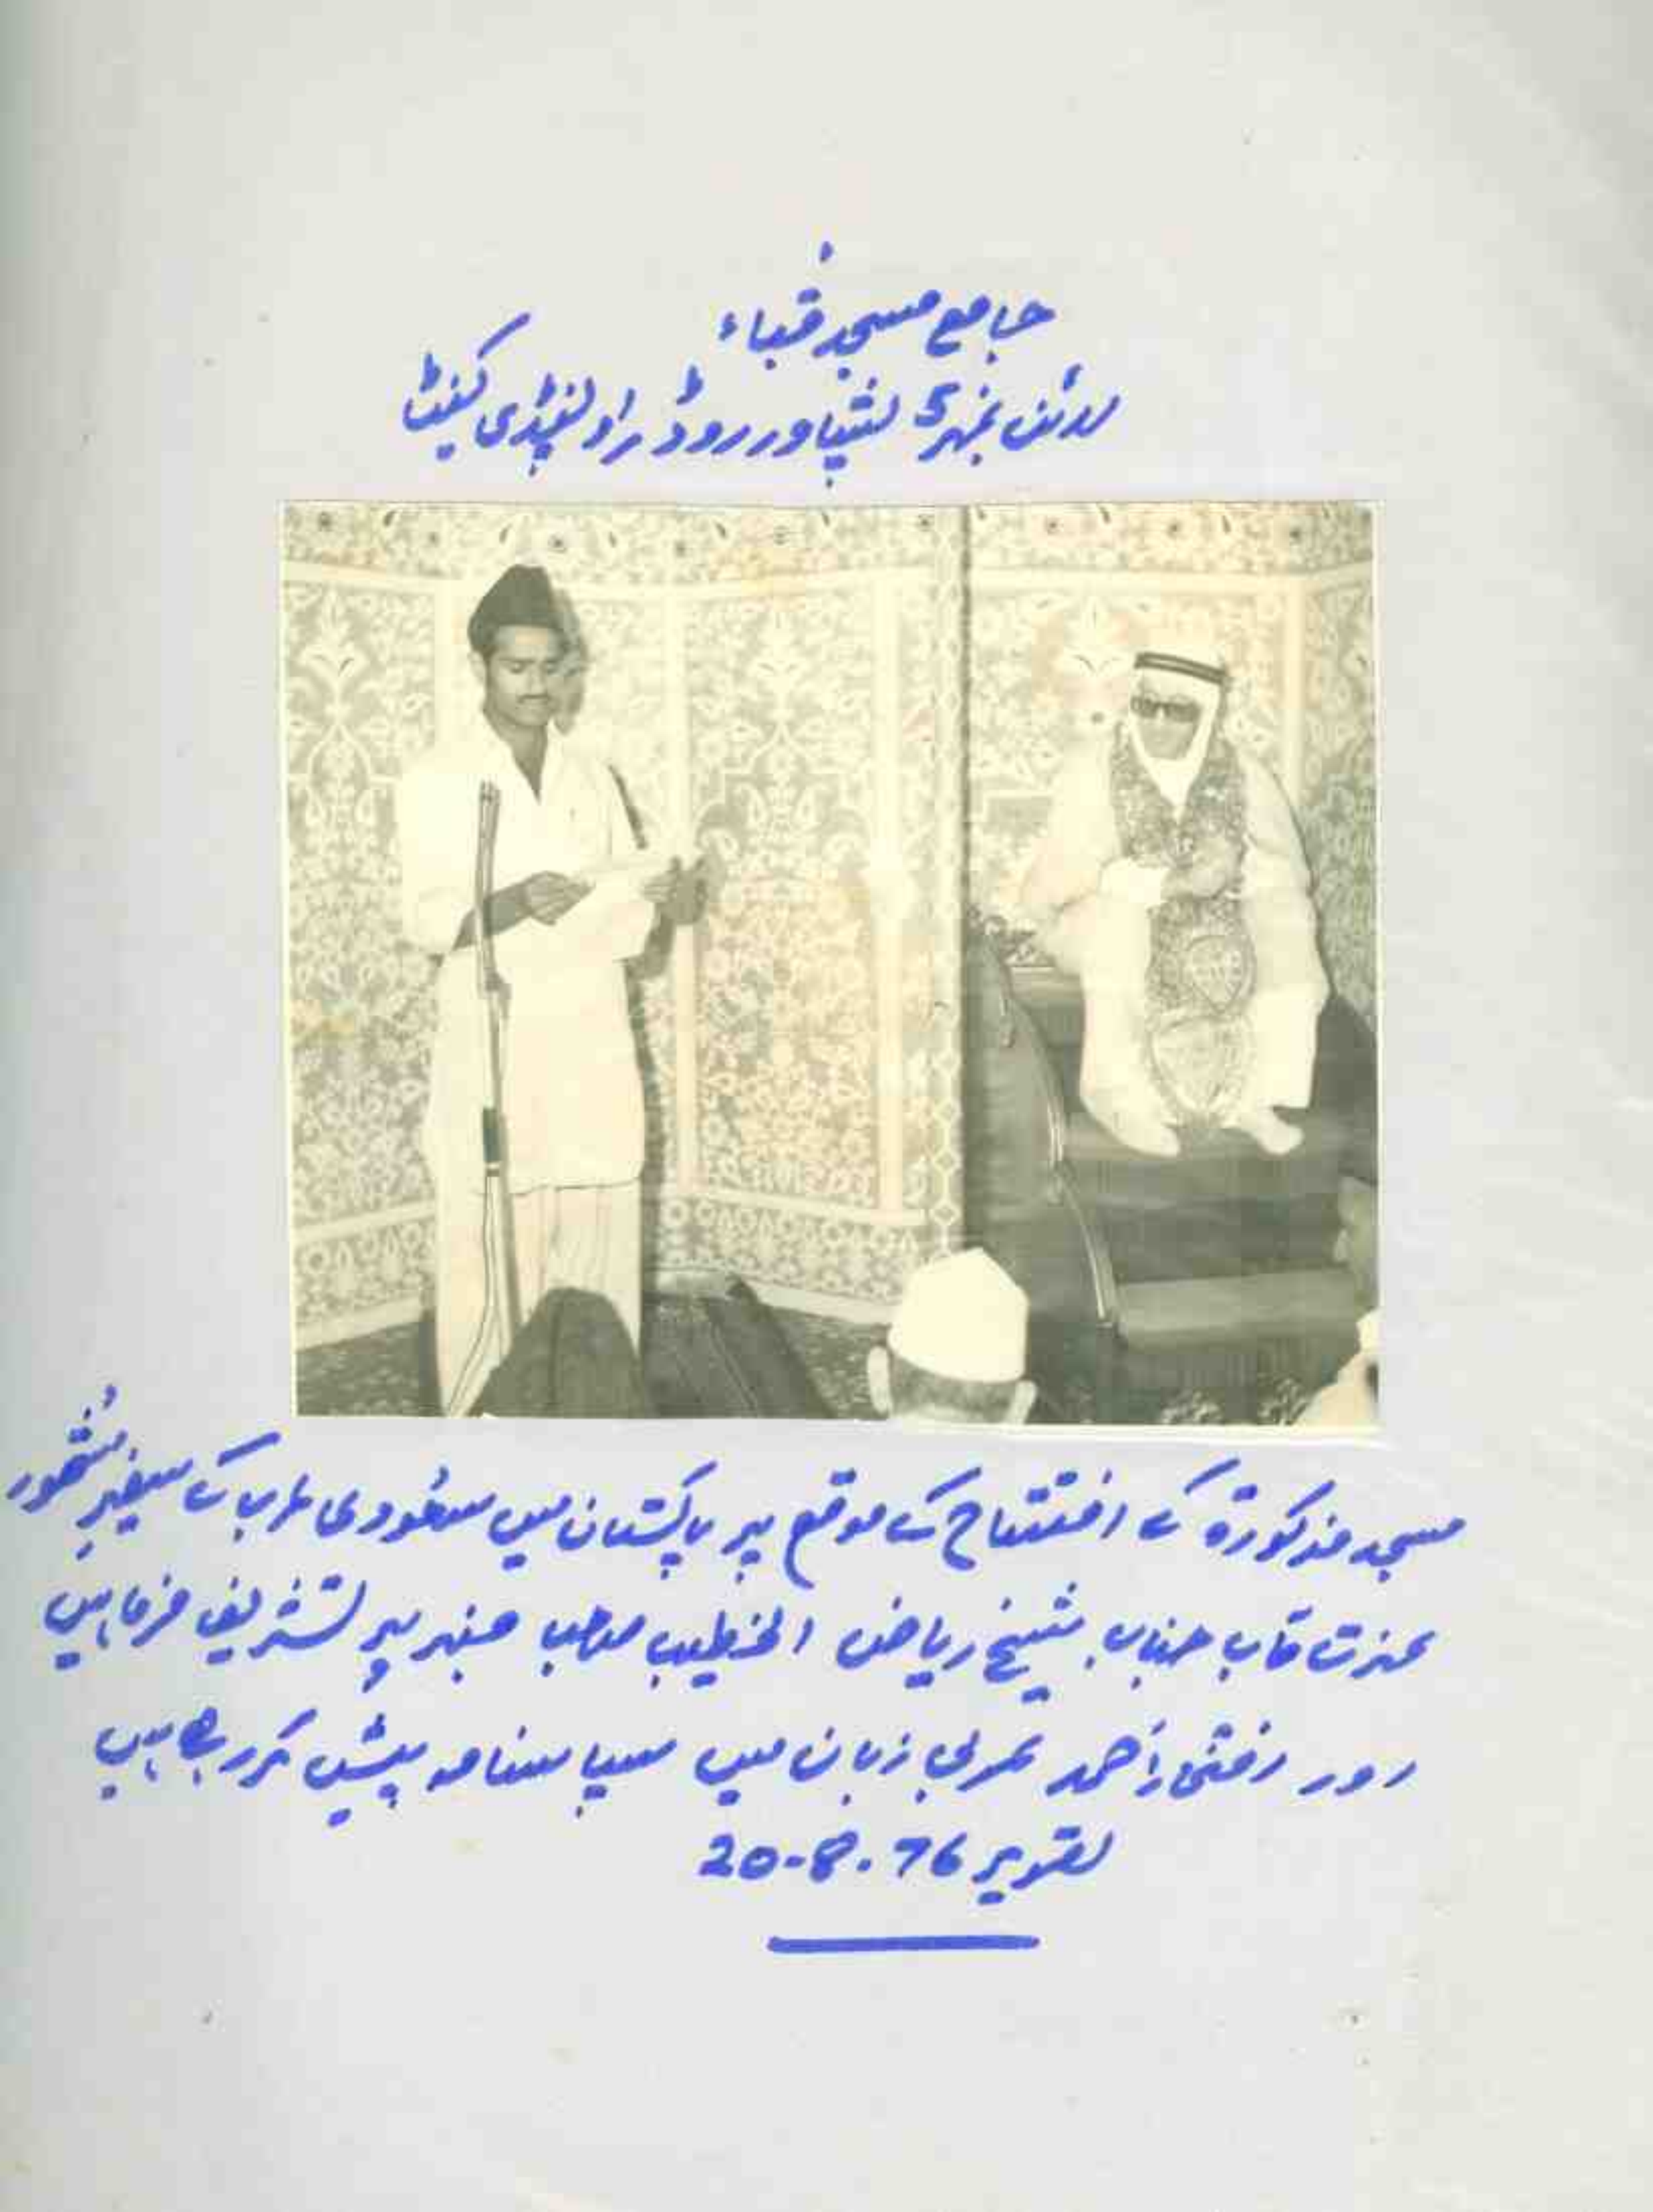 جامع مسجد قباء
لائن نمبر 5 پشاور روڈ راولپنڈی کینٹ
مسجد مذکورہ کے افتتاح کے موقع پر پاکستان میں سعودی عرب کے سفیر
عزت مآب جناب شیخ ریاض الخطیب صاحب منبر پر تشریف فرما ہیں
اور افتخار احمد عربی زبان میں سپاسنامہ پیش کر رہے ہیں
20-8-76